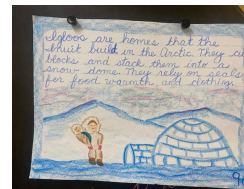 Igloos are homes that the
Inuit build in the Arctic. They cu
blocks and stack them into a
snow dome. They rely on seals
for food, warmth, and clothing.